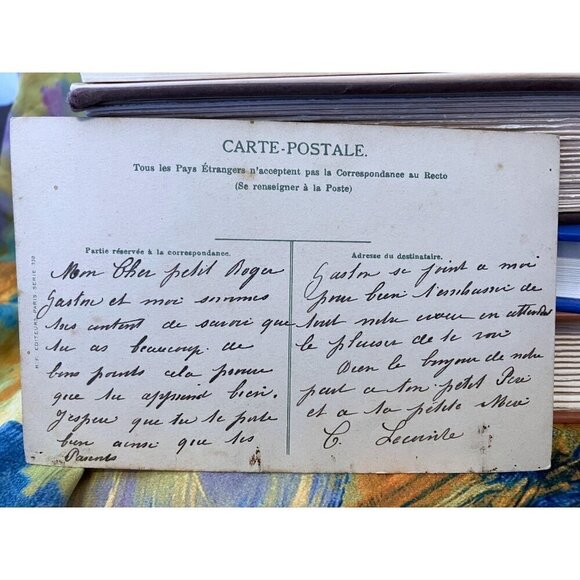 CARTE-POSTALE.
Tous les Pays Étrangers n'acceptent pas la Correspondance au Recto
(Se renseigner à la Poste)
Partie réservée à la correspondance.
Mon Cher petit Roger
Gaston et moi sommes
tres content de savoir que
tu as beaucoup de
bons points cela prouve
que tu apprend bien.
J'espere que tu te porte
bien ainsi que tes
Parents
Adresse du destinataire.
Gaston se joint a moi
pour bien t'embrasser de
tout notre cœur en attendant
le plaisir de te voir
Bien le bonjour de notre
part a ton petit Père
et a ta petite Mère
C. Lecointe
EDITEURS PARIS SERIE